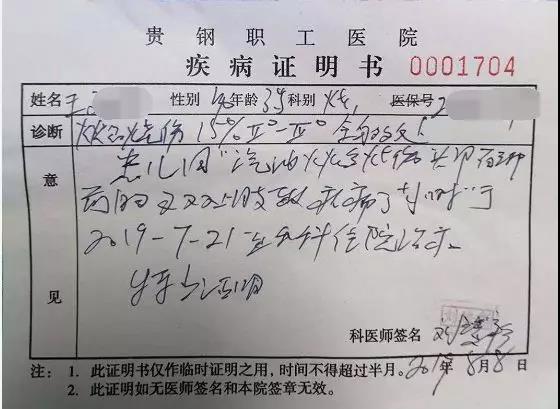 贵钢职工医院
疾病证明书 0001704
姓名 王 性别 年龄 3岁 科别 烧 医保号
诊断 火焰烧伤 15% II°-III° 全身多处
意见
患儿因"汽油火焰烧伤头 面
双 肢致疼痛 小时"于
2019-7-21 在我科住院治疗。
特此证明
科医师签名
2019年8月8日
注: 1. 此证明书仅作临时证明之用,时间不得超过半月。
2. 此证明如无医师签名和本院签章无效。